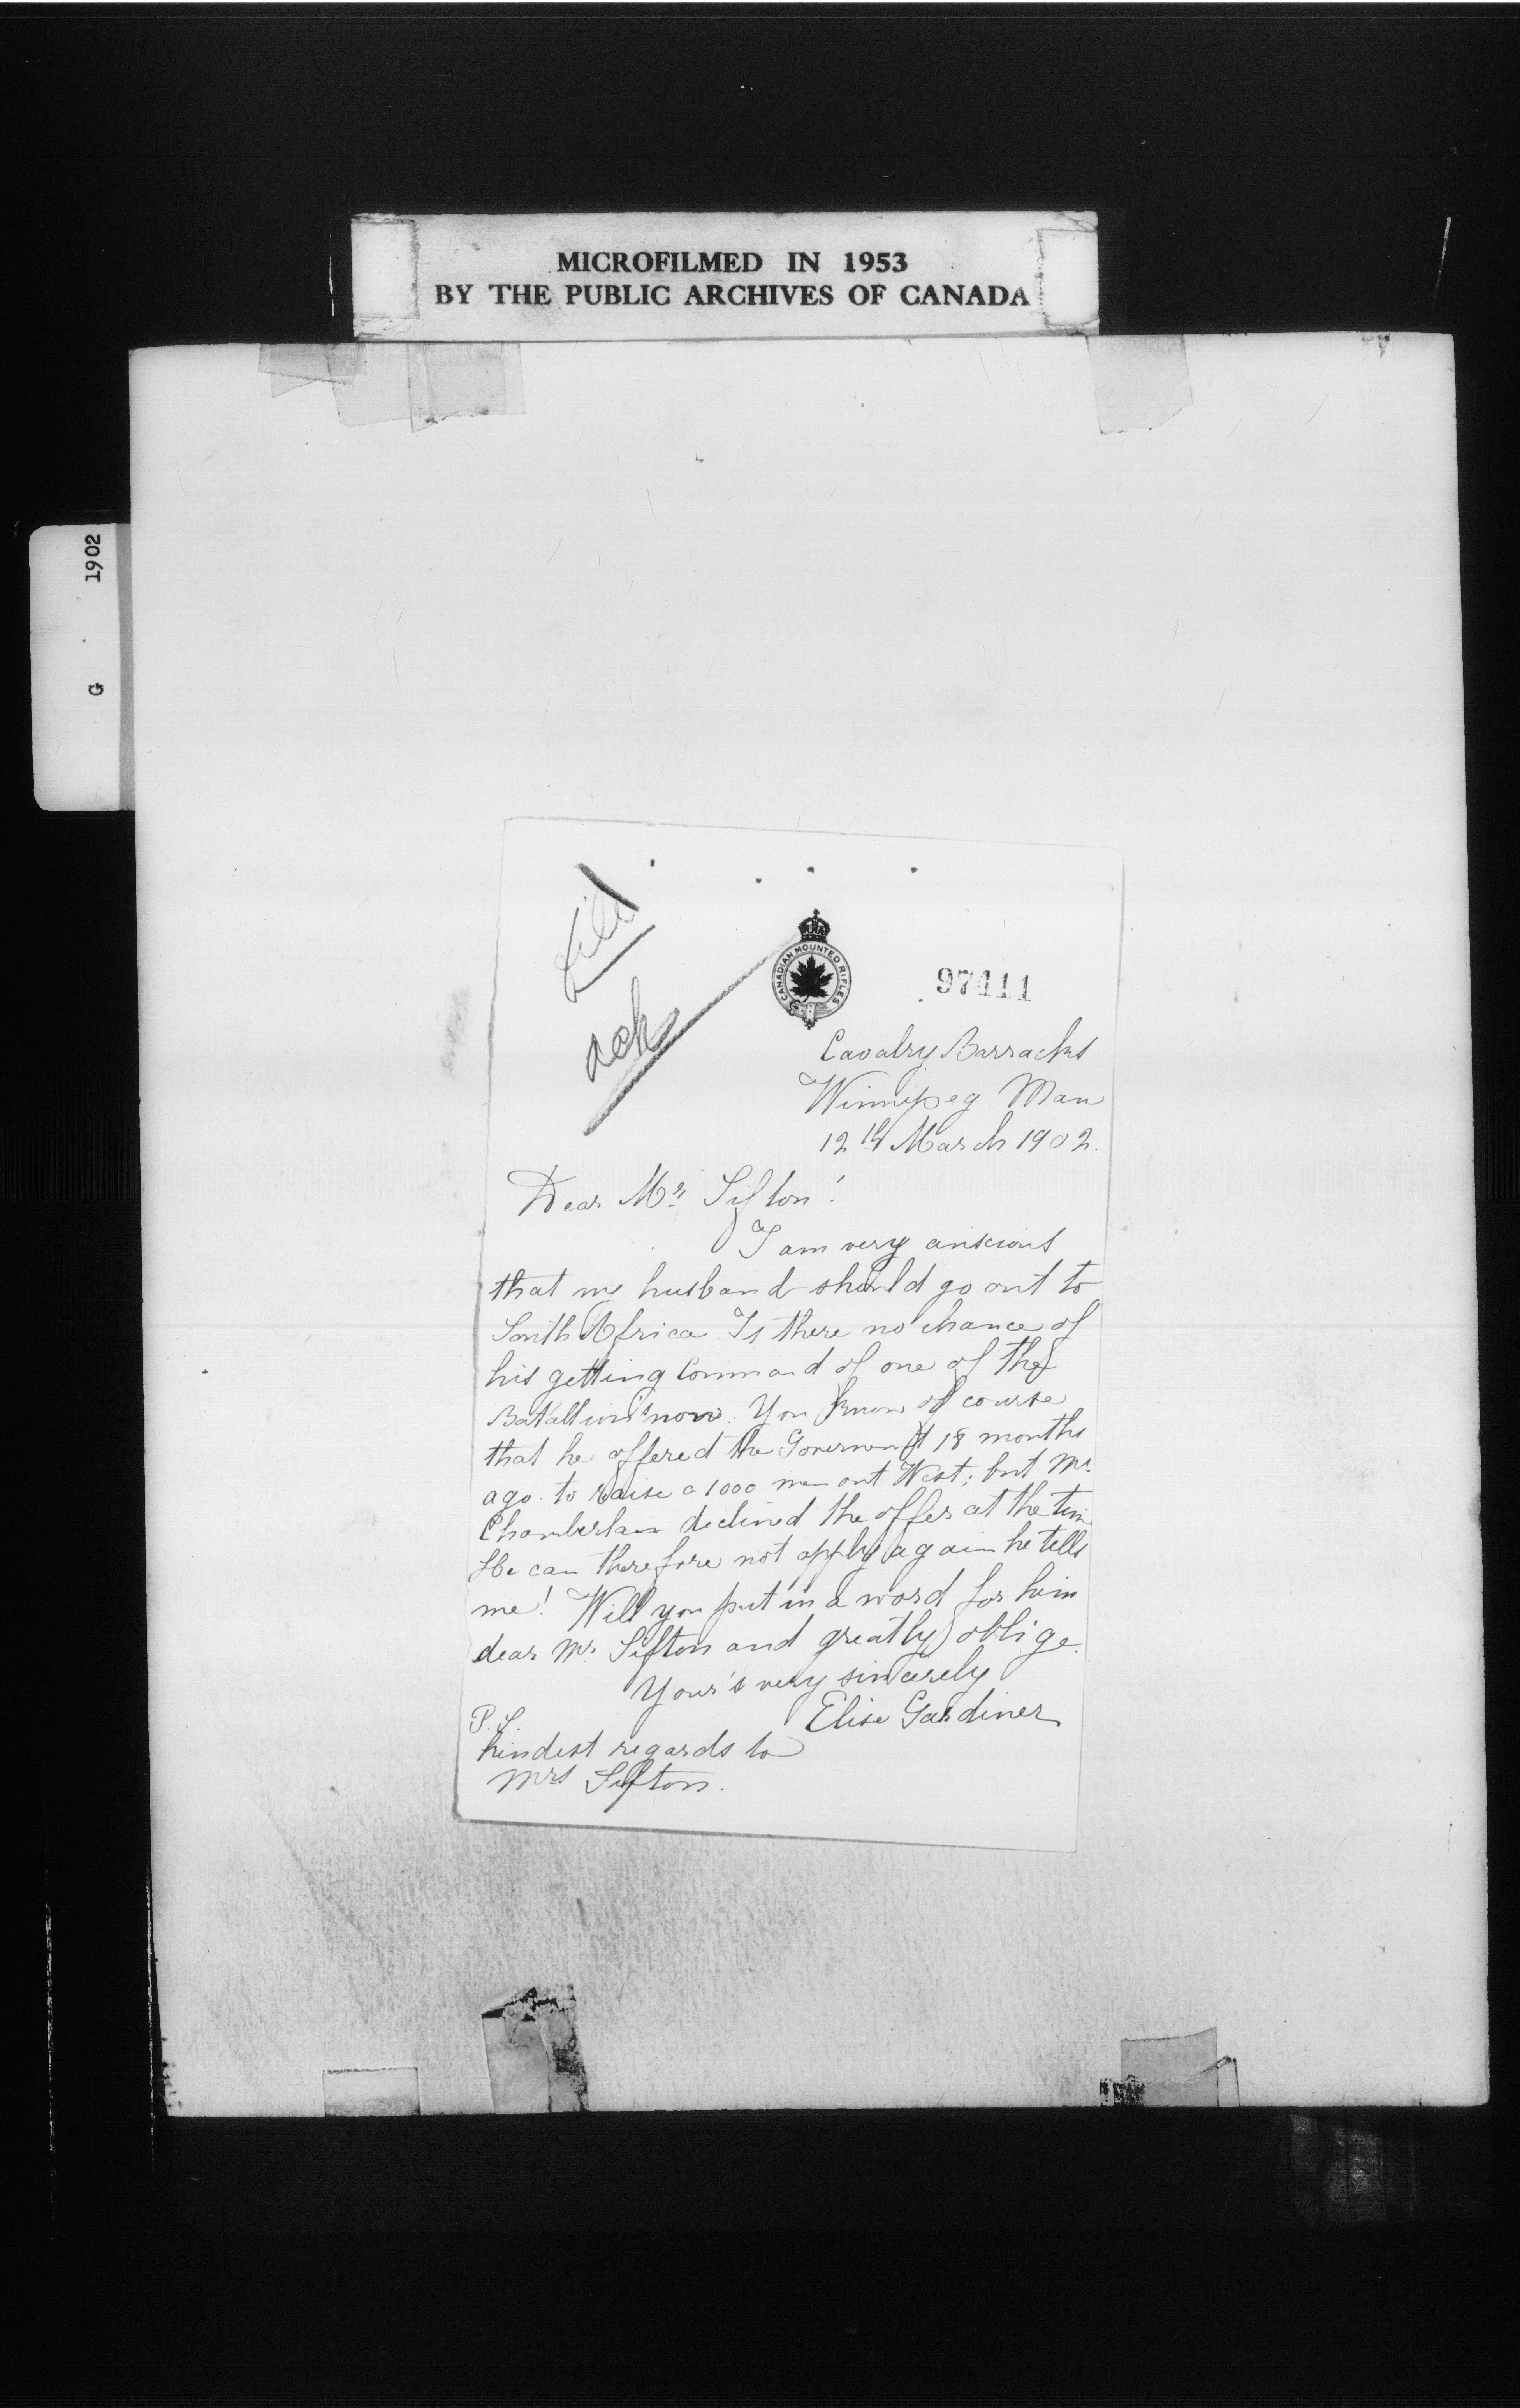 MICROFILMED IN 1953
BY THE PUBLIC ARCHIVES OF CANADA
G 1902
file
ack
CANADIAN MOUNTED RIFLES
97111
Cavalry Barracks
Winnipeg Man
12th March 1902.
Dear Mr. Sifton!
I am very anxious
that my husband should go out to
South Africa Is there no chance of
his getting Command of one of the
Batallion's now. You know of course
that he offered the Government 18 months
ago to raise a 1000 men out West; but Mr.
Chamberlain declined the offer at the time
He can therefore not apply again he tells
me! Will you put in a word for him
dear Mr. Sifton and greatly oblige.
Your's very sincerely
Elise Gardiner
P.S.
kindest regards to
Mrs Sifton.